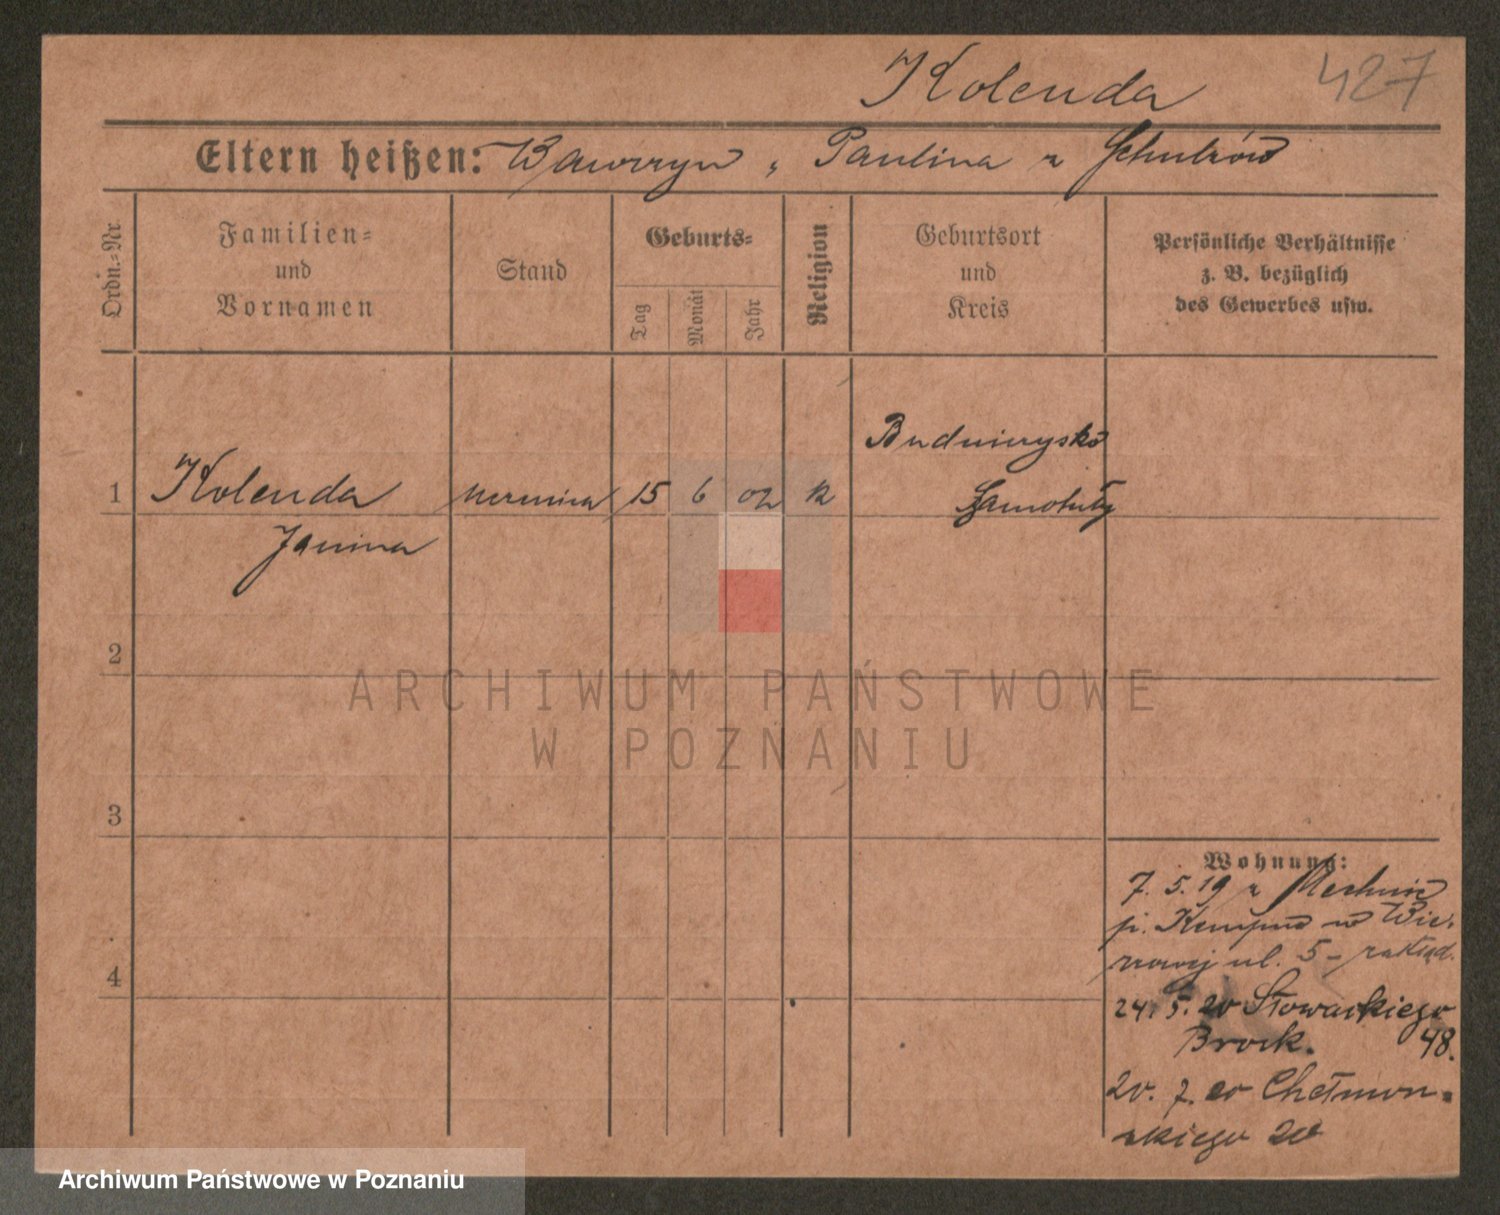 Kolenda 427
Eltern heißen: Wawrzyn, Paulina z Schulzów
Ordn.-Nr.
Familien-
und
Vornamen
Stand
Geburts-
Tag
Monat
Jahr
Religion
Geburtsort
und
Kreis
Persönliche Verhältnisse
z. B. bezüglich
des Gewerbes usw.
Budniczysko
1 Kolenda 15 6 02 k Szamotuły
Janina
2
3
4
Wohnung:
7. 5. 19 z
p. Kempno w Wie-
ul. 5 - zakład.
24. 5. 20 Słowackiego
Brock. 48.
20. 7. 20 Chełmoń-
skiego 20
ARCHIWUM PAŃSTWOWE
W POZNANIU
Archiwum Państwowe w Poznaniu